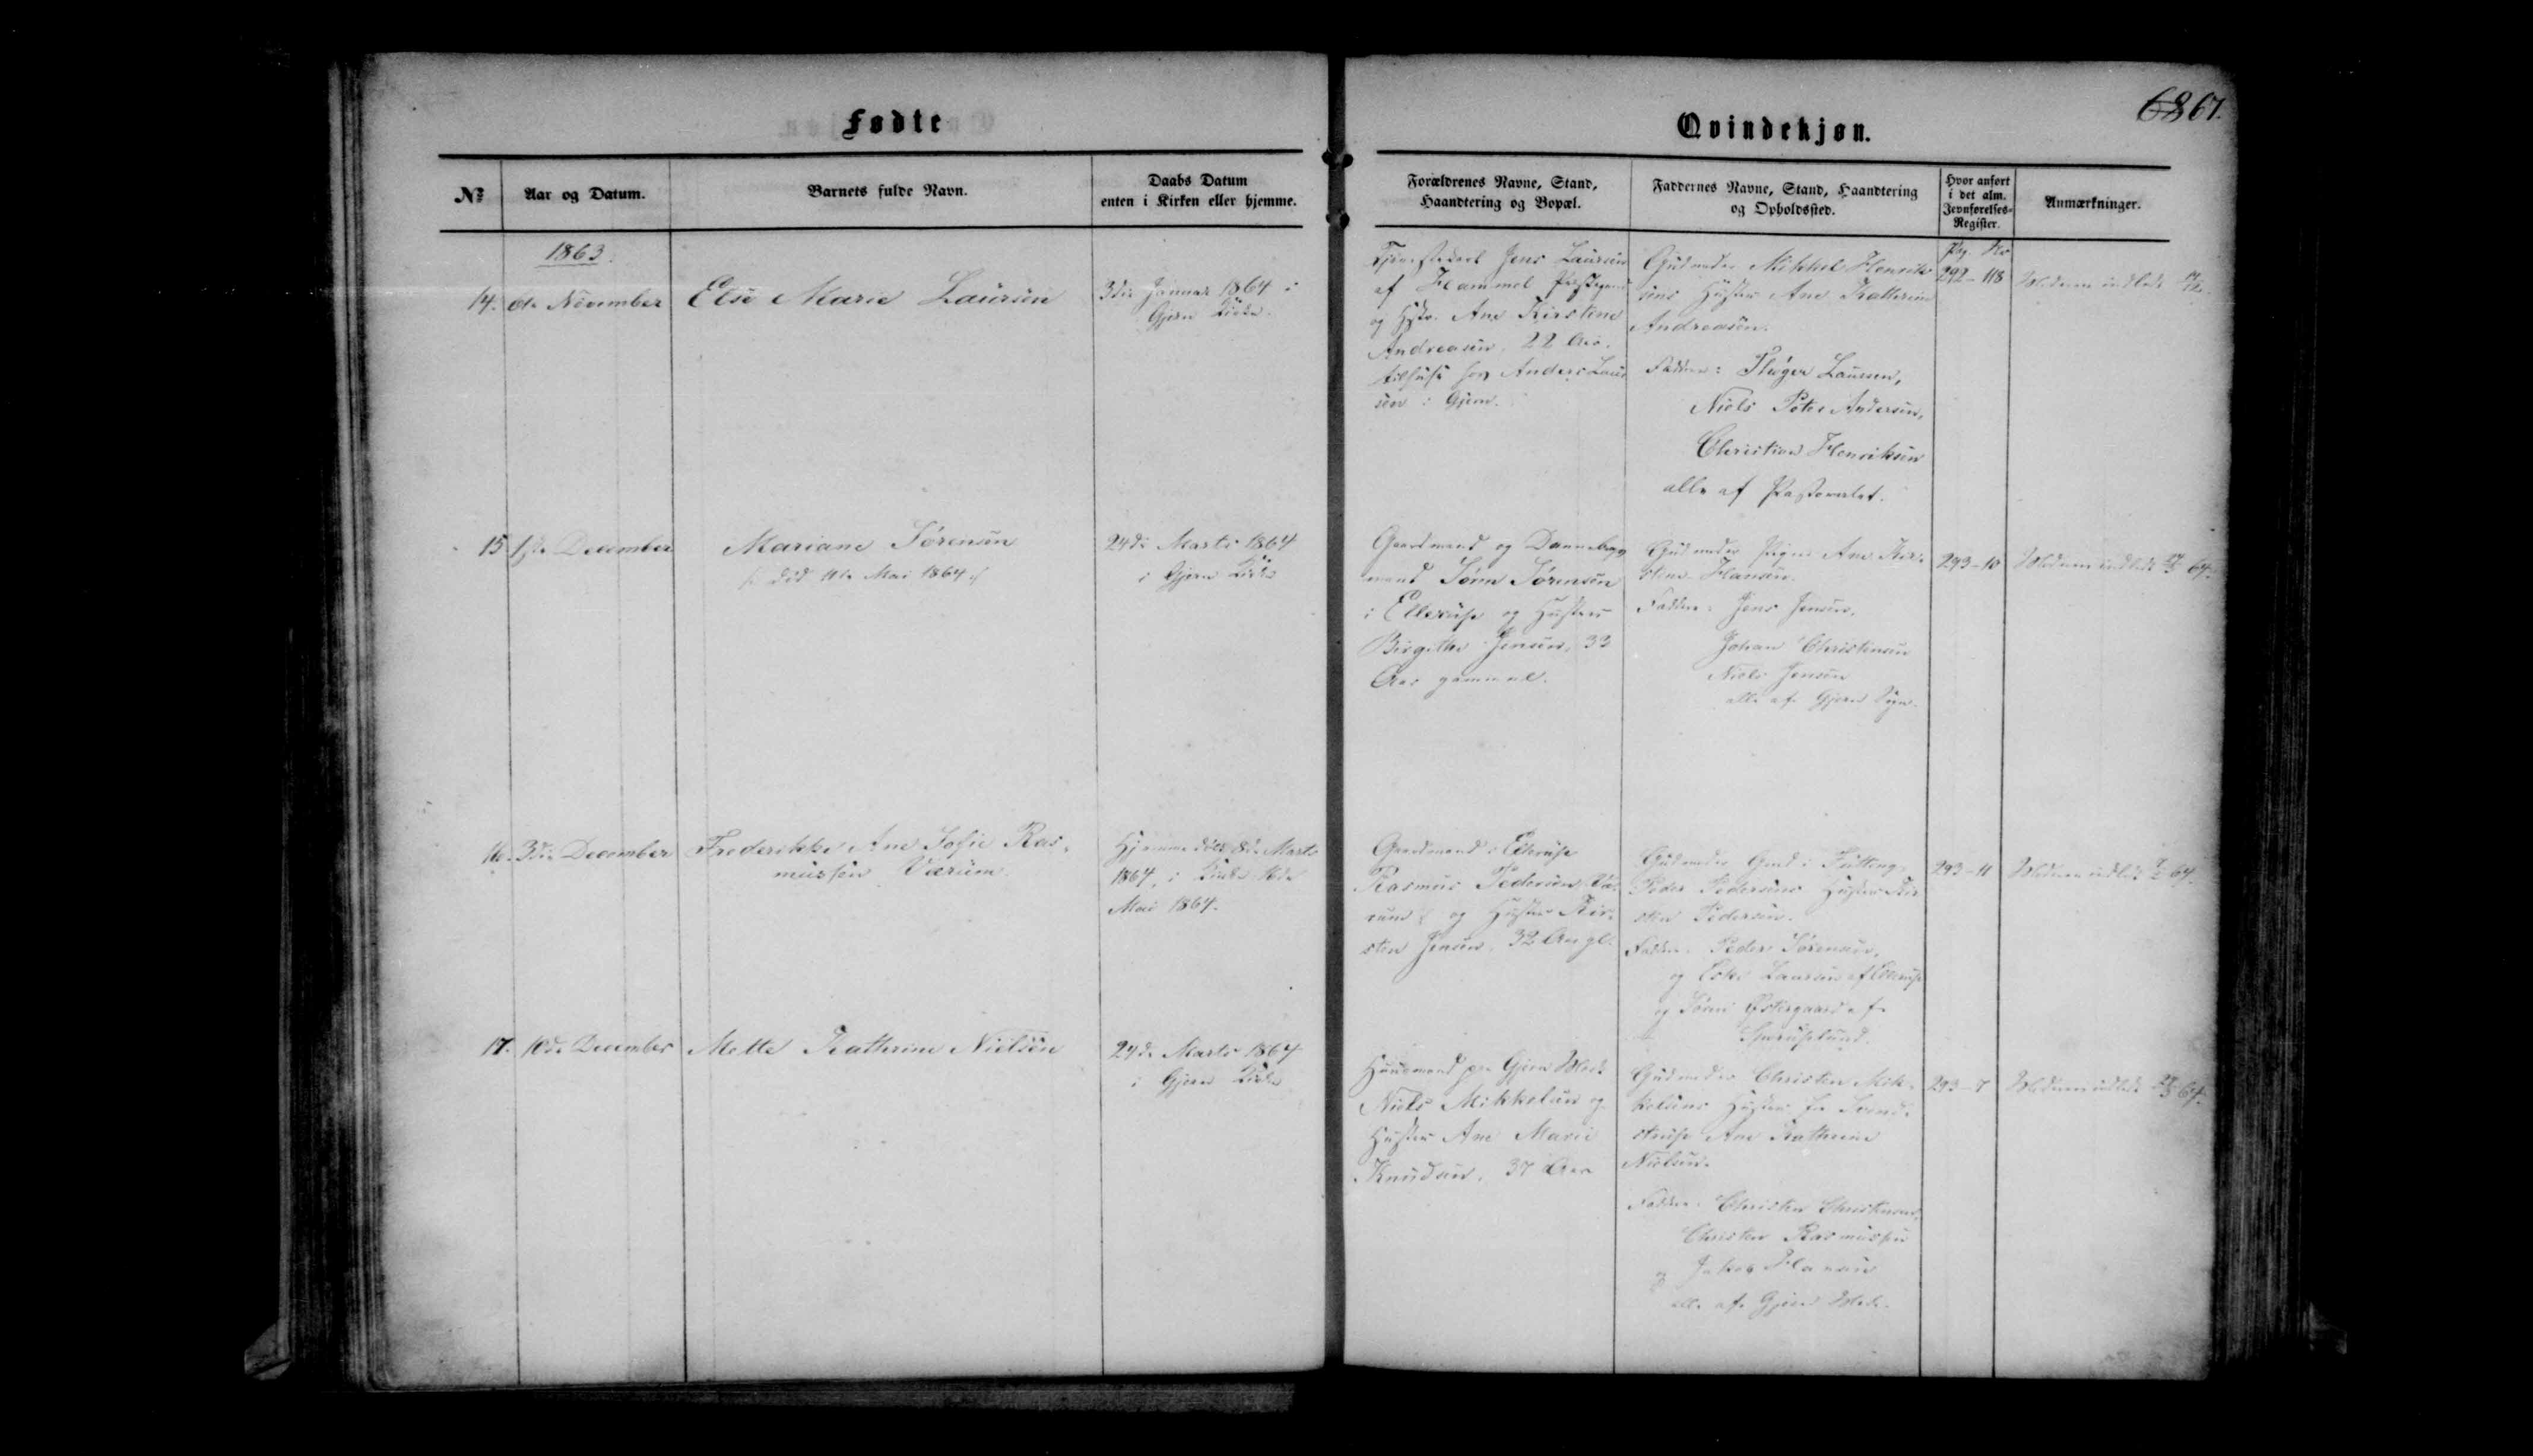 Fødte
Qvindekjøn.
6867.
No
Aar og Datum.
Barnets fulde Navn.
Daabs Datum
enten i Kirken eller hjemme.
Forældrenes Navne, Stand,
Haandtering og Bopæl.
Faddernes Navne, Stand, Haandtering
og Opholdssted.
Hvor anført
i det alm.
Jevnførelses-
Register.
Anmærkninger.
1863.
14. 6te November
Else Marie Laursen
3die Januar 1864 i
Gjern Kirke.
Jens Laursen
af Hammel
og Hstr. Ane Kirstine
Andreasen, 22 Aar.
hos Anders Laur
sen i Gjern.
Gudmoder Mikkel Henrik
sens Hustru Ane Kathrine
Andreasen.
Faddere: Laursen,
Niels Peter Andersen,
Christian Henriksen
alle af Pastoratet.
Pag. No
292-118
15. 1ste December
Mariane Sørensen
død 11te Mai 1864
24de Marts 1864
i Gjern Kirke
Gaardmand og Dannebrogs
mand Søren Sørensen
i Ellerup og Hustru
Birgithe Jensen, 32
Aar gammel.
Gudmoder Pigen Ane Kir-
stine Hansen.
Faddere: Jens Jensen,
Johan Christensen
Niels Jensen
alle af Gjern Sogn.
293-10
64.
16. 3die December
Frederikke Ane Sofie Ras-
mussen Værum.
Hjemmedøbt 8de Marts
1864, i Kirke 16de
Mai 1864.
Gaardmand i Ellerup
Rasmus Pedersen Væ-
rum og Hustru Kir-
sten Jensen, 32 Aar gl.
Gudmoder Gmd i
Peder Pedersens Hustru Kir
sten Pedersen.
Faddere: Peder Sørensen,
og Eske Laursen af Ellerup
og Søren Østergaard af
293-11
64.
17. 10de December
Mette Kathrine Nielsen
24de Marts 1864
i Gjern Kirke
Huusmand paa Gjern Mark
Niels Mikkelsen og
Hustru Ane Marie
Knudsen, 37 Aar
Gudmoder Christen Mik-
kelsens Hustru fra Svend-
strup Ane Kathrine
Nielsen.
Faddere: Christen Christensen,
Christen Rasmussen
og Jakob Hansen
alle af Gjern Mark.
293-7
64.